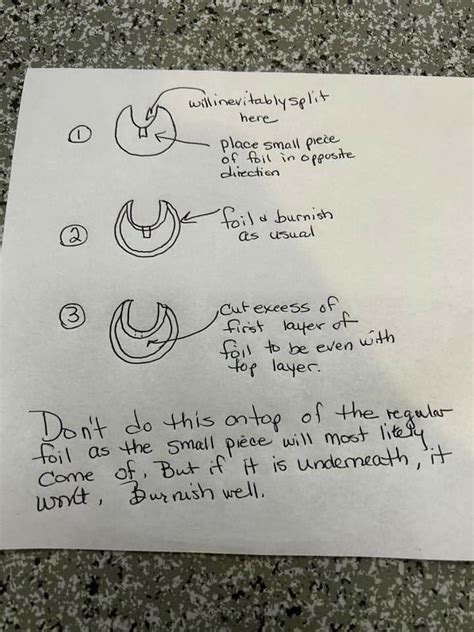 ① willinevitably split
here
place small piece
of foil in opposite
direction
② foil & burnish
as usual
③ cut excess of
first layer of
foil to be even with
top layer.
Don't do this ontop of the regular
foil as the small piece will most litely
come of. But if it is underneath, it
won't. Burnish well.